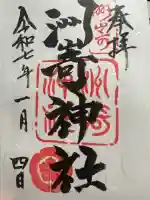 奉拝
洲嵜神社
令和七年
一月
四日